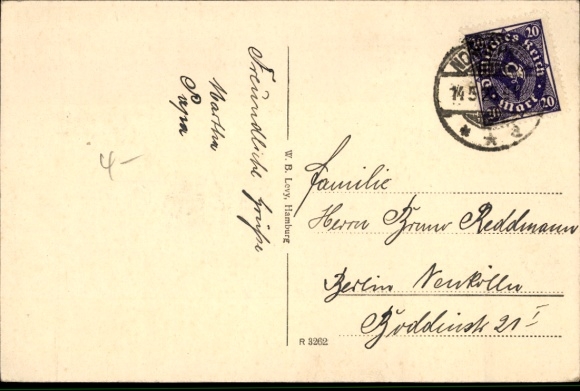 Freundliche Grüße
Martha
Papa
4-
W. B. Levy, Hamburg
R 3262
20
Deutsches Reich
Mark
20
14.5
Familie
Herrn Bruno Reddmann
Berlin Neukölln
Boddinstr 21 I